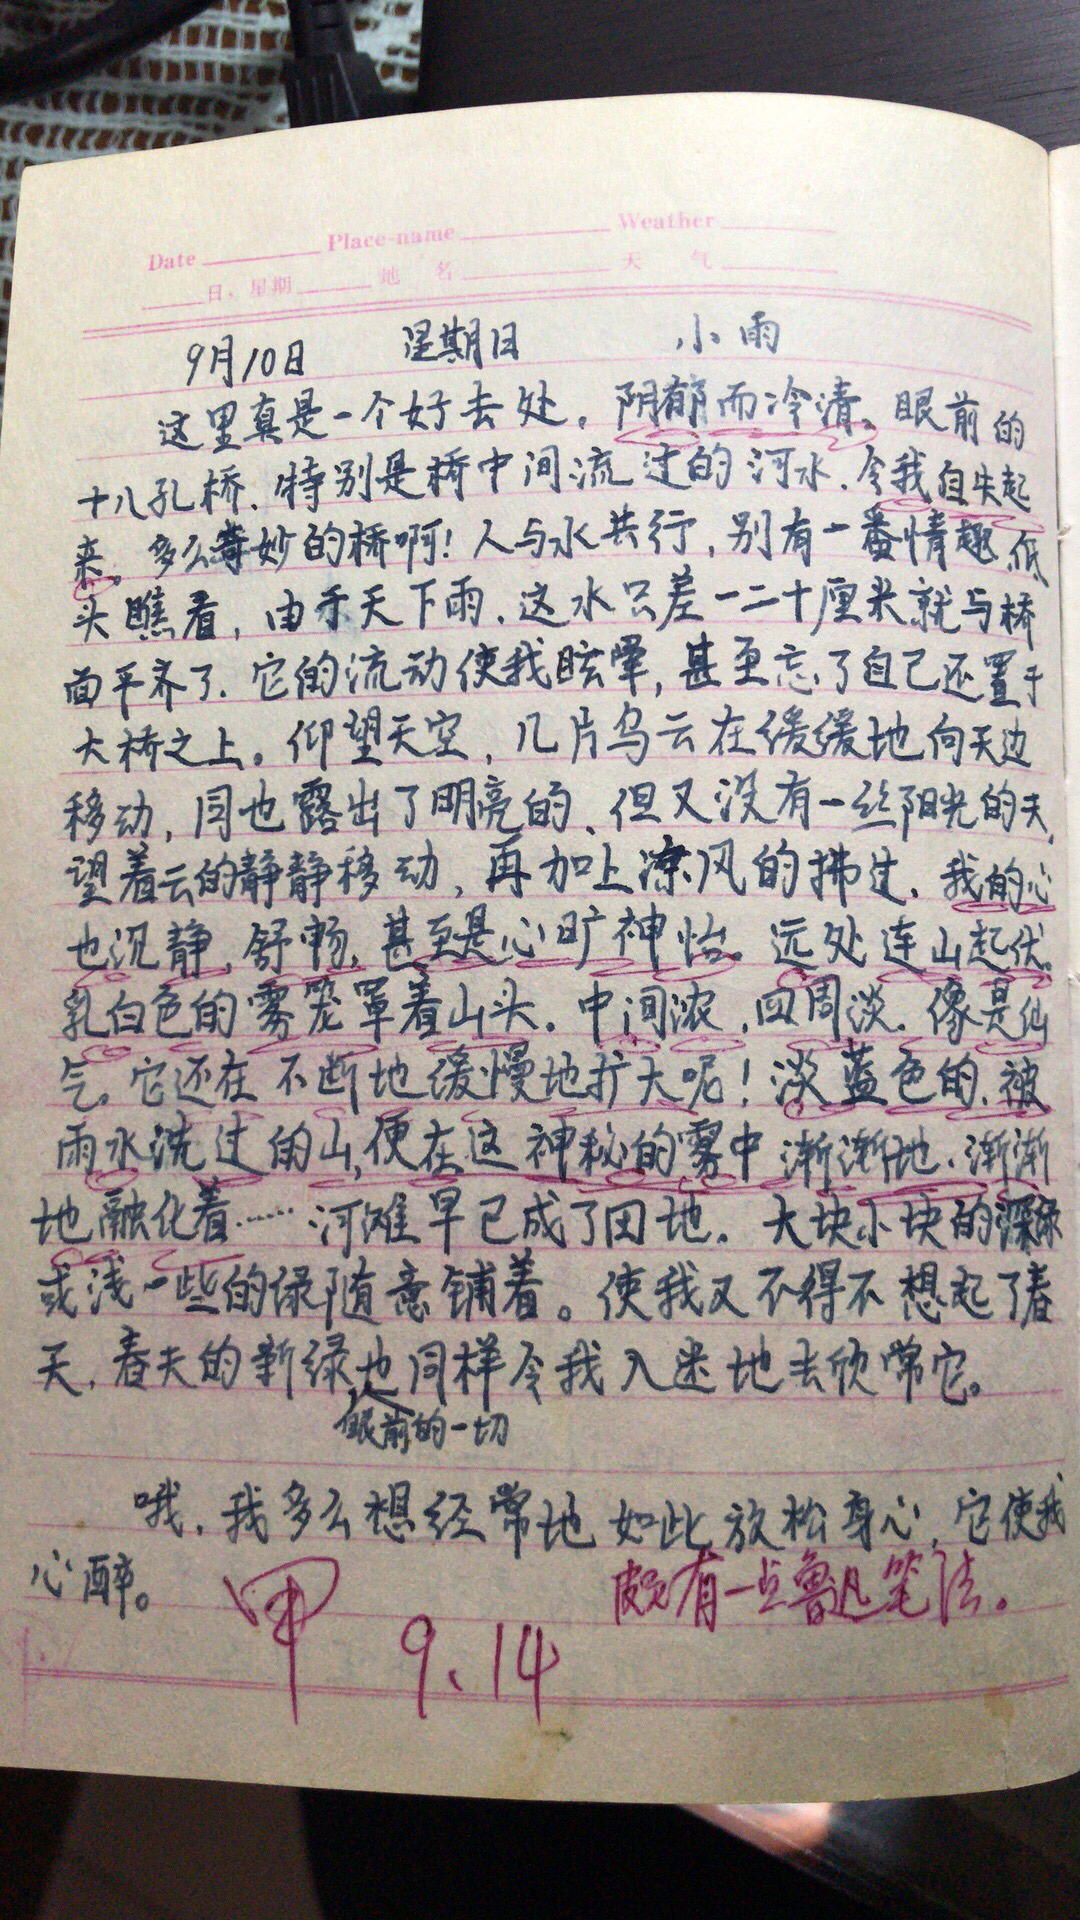 Date Place-name Weather
日、星期 地 名 天 气
9月10日 星期日 小雨
这里真是一个好去处。阴郁而冷清。眼前的
十八孔桥、特别是桥中间流过的河水、令我自失起
来。多么奇妙的桥啊!人与水共行,别有一番情趣,低
头瞧看,由于天下雨,这水只差一二十厘米就与桥
面平齐了、它的流动使我眩晕,甚至忘了自己还置于
大桥之上。仰望天空,几片乌云在缓缓地向天边
移动,同也露出了明亮的、但又没有一丝阳光的天,
望着云的静静移动,再加上凉风的拂过、我的心
也沉静,舒畅,甚至是心旷神怡。远处连山起伏。
乳白色的雾笼罩着山头。中间浓,四周淡。像是仙
气。它还在不断地缓慢地扩大呢!淡蓝色的、被
雨水洗过的山,便在这神秘的雾中渐渐地、渐渐
地融化着……河滩早已成了田地。大块小块的深绿
或浅一些的绿随意铺着。使我又不得不想起了春
天,春天的新绿也同样令我入迷地去欣常它。
眼前的一切
哦,我多么想经常地如此放松身心,它使我
心醉。
颇有一点鲁迅笔法。
甲 9.14